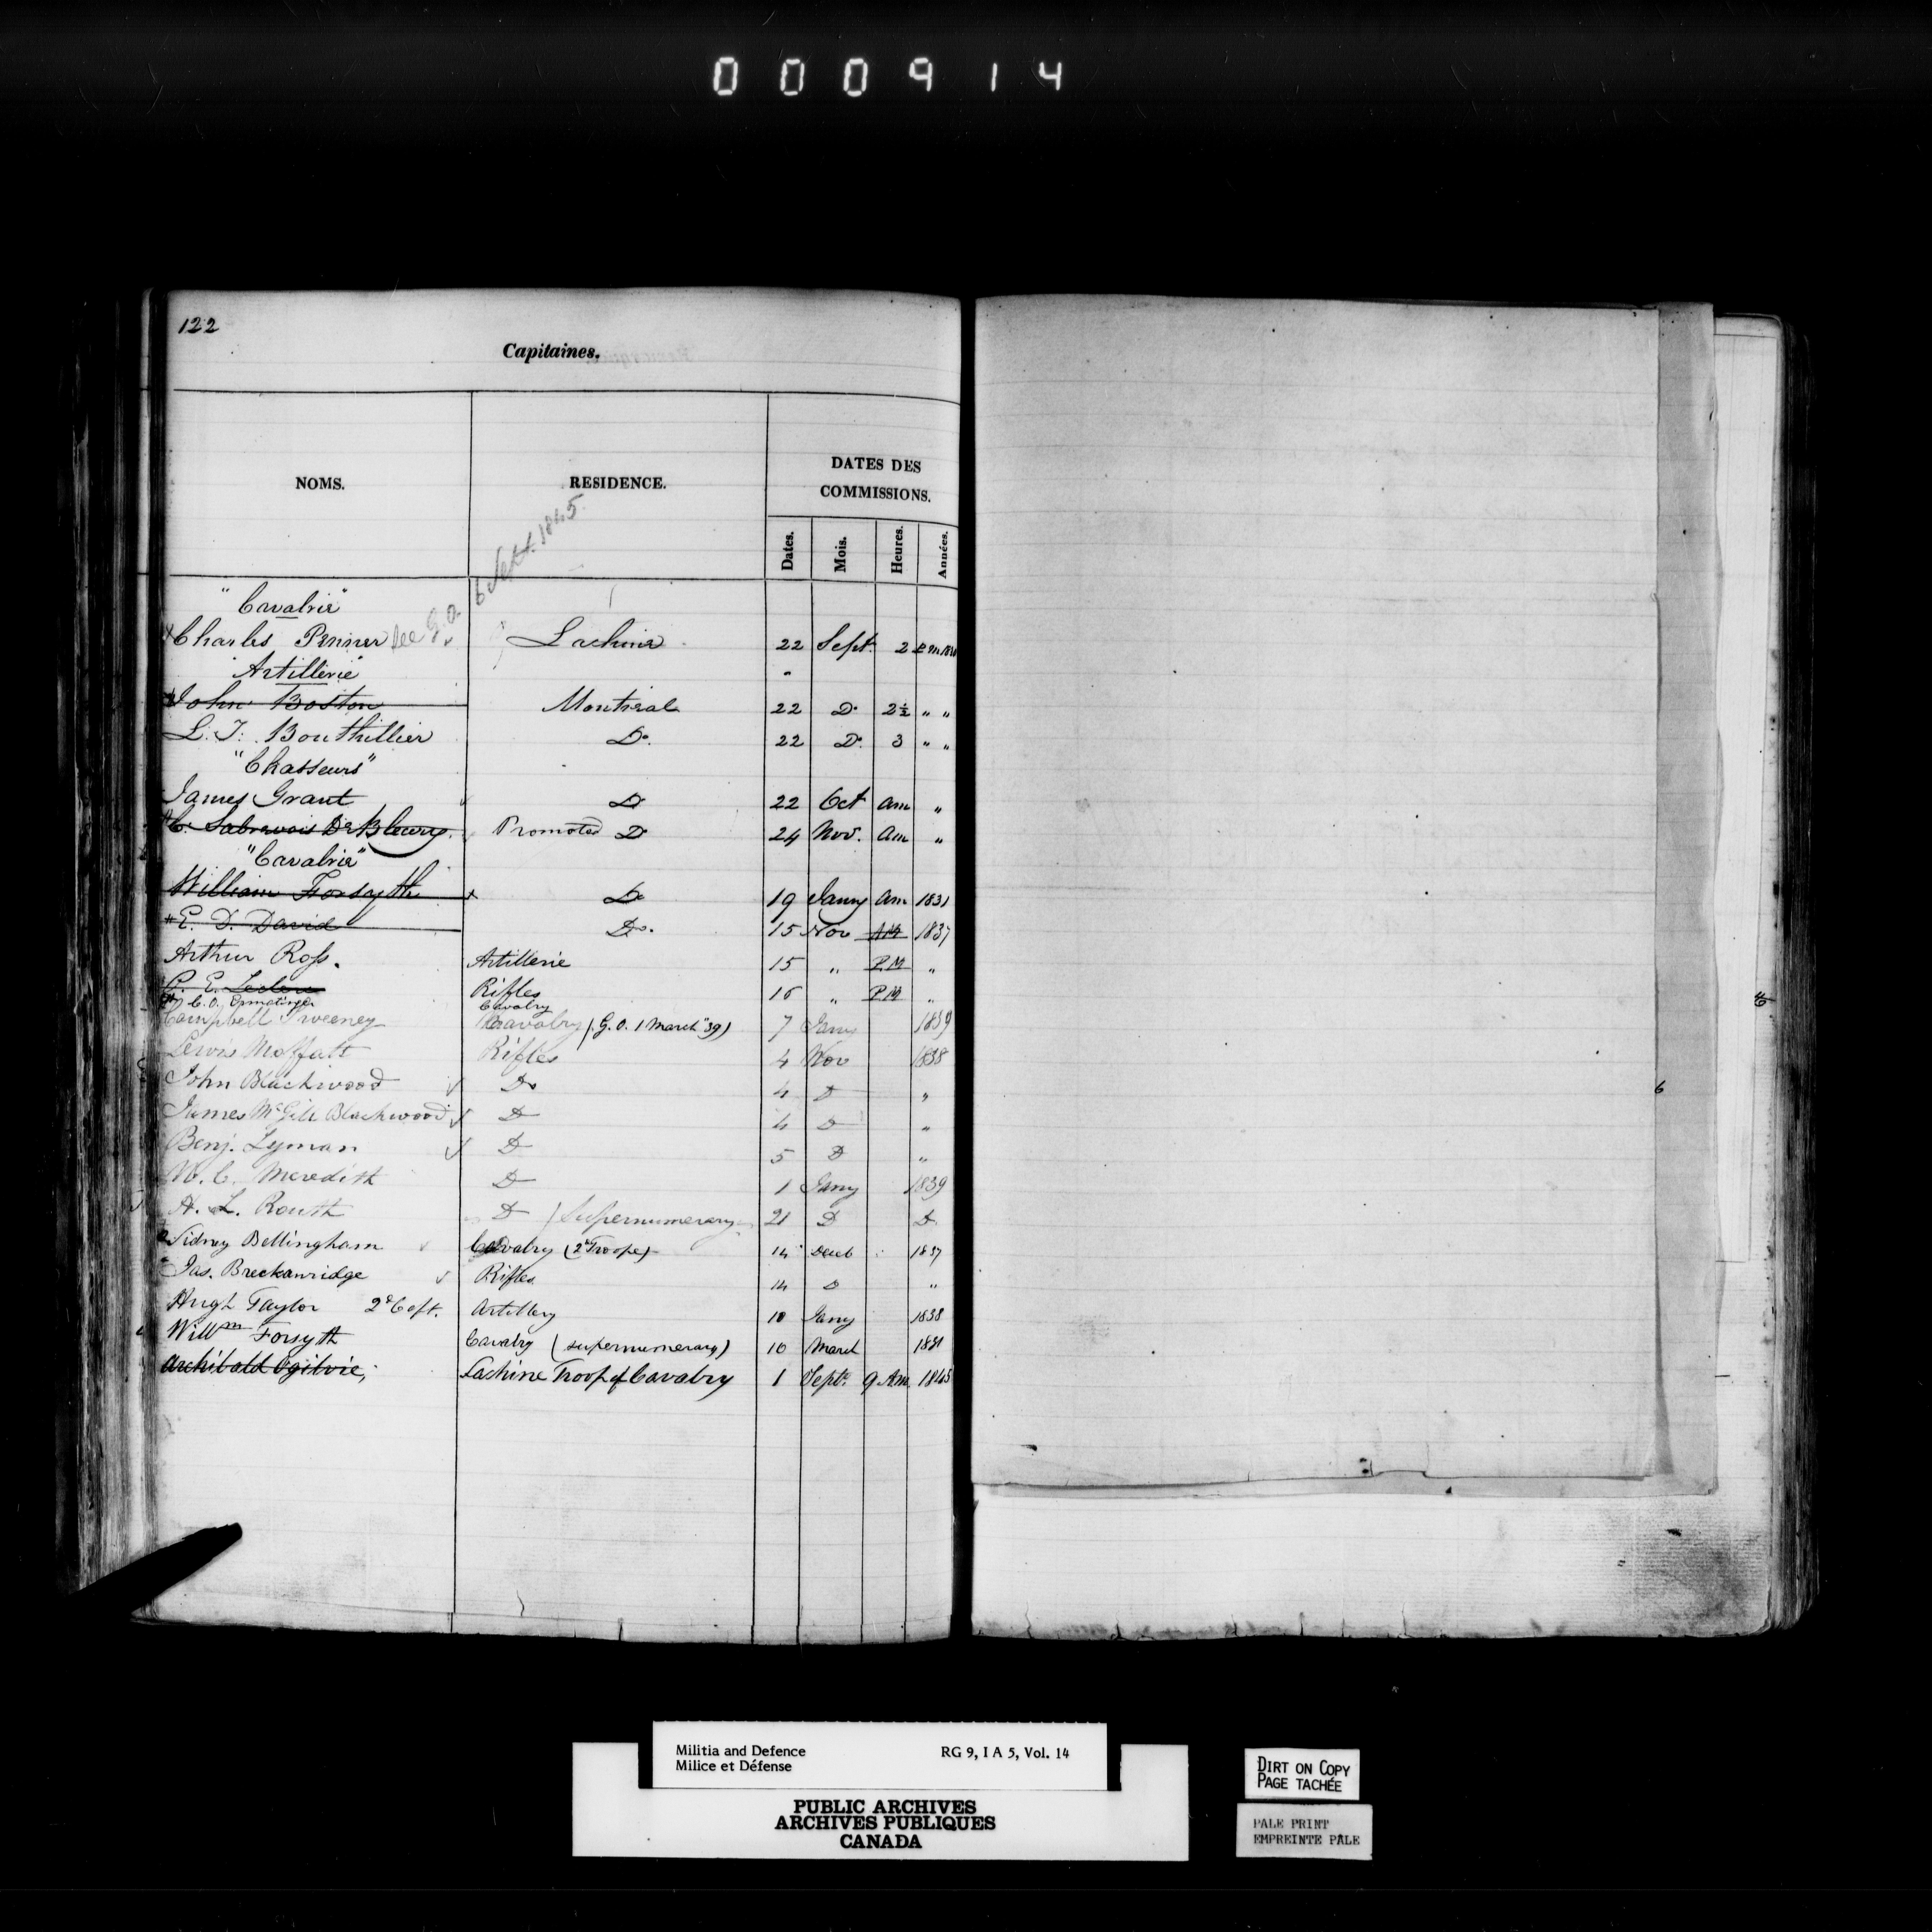 000914
122
Capitaines.
NOMS. RESIDENCE. DATES DES COMMISSIONS.
Dates. Mois. Heures. Années.
"Cavalrie"
Charles Penner See G.O. 6 Sept. 1845 Lachine 22 Sept. 2 P M
"Artillerie"
John Boston Montreal 22 Do 2½ " "
L. T. Bouthillier Do. 22 Do. 3 " "
"Chasseurs"
James Grant Do 22 Oct am "
C. Sabrevois De Bleury. Promoted Do 24 Nov. am "
"Cavalrie"
William Forsyth Do 19 Janry am 1831
E. D. David Do. 15 Nov AM 1837
Arthur Ross. Artillerie 15 " P.M "
P. E. Leclere Rifles 16 " P.M "
C. O. Ermatinger Cavalry
Campbell Sweeney Cavalry (G. O. 1 March "39) 7 Jany 1839
Lewis Moffatt Rifles 4 Nov 1838
John Blackwood Do 4 Do "
James McGill Blackwood Do 4 Do "
Benj. Lyman Do 5 Do "
W. C. Meredith Do 1 Jany 1839
H. L. Routh Do (Supernumerary 21 Do Do
Sidney Bellingham Cavalry (2d Troop) 14 Decb 1837
Jas. Breckanridge Rifles 14 Do "
Hugh Taylor 2d Capt. Artillery 10 Jany 1838
Willm Forsyth Cavalry (supernumerary) 10 March 1831
Archibald Ogilvie, Lachine Troop of Cavalry 1 Septr 9 Am 1845
6
Militia and Defence RG 9, I A 5, Vol. 14
Milice et Défense
PUBLIC ARCHIVES
ARCHIVES PUBLIQUES
CANADA
DIRT ON COPY
PAGE TACHÉE
PALE PRINT
EMPREINTE PÂLE